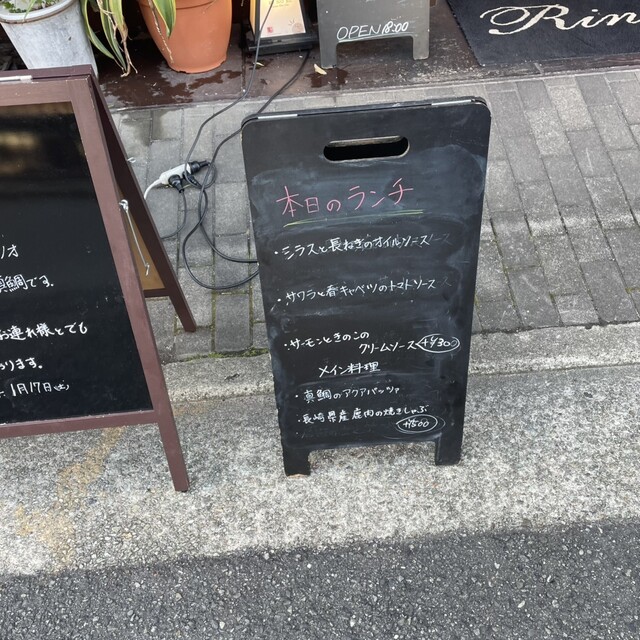 OPEN 18:00
Rin
リオ
真鯛です。
お連れ様とでも
ります。
1月17日(土)
本日のランチ
・シラスと長ねぎのオイルソース
・サワラと春キャベツのトマトソース
・サーモンときのこの
クリームソース +¥300
メイン料理
・真鯛のアクアパッツァ
・長崎県産鹿肉の焼きしゃぶ
+¥500